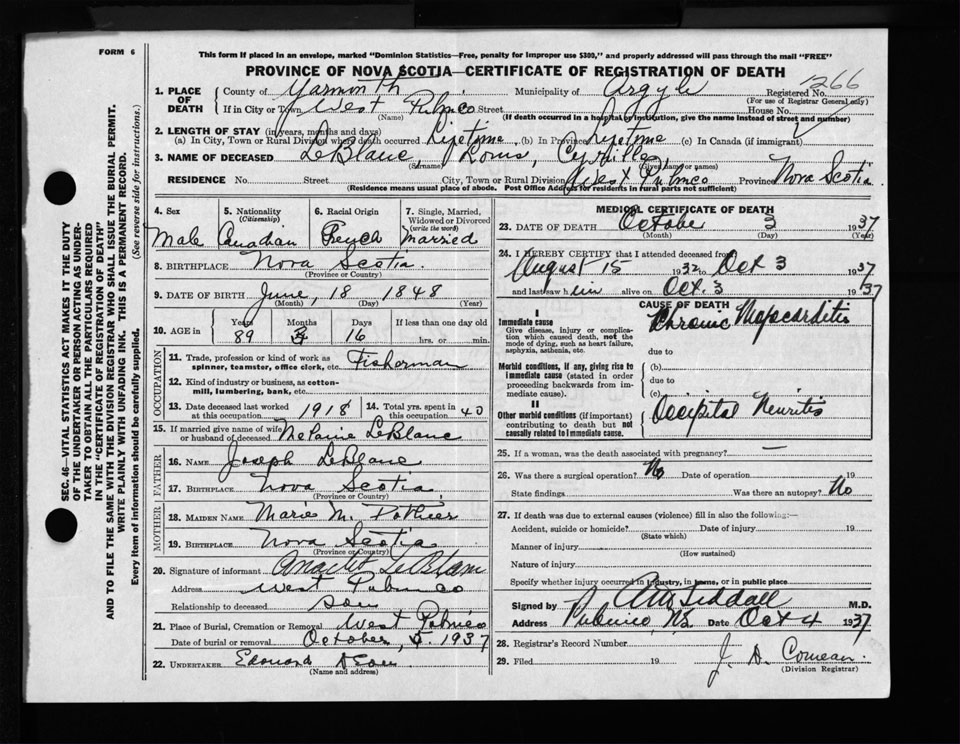 FORM 6
This form if placed in an envelope, marked "Dominion Statistics—Free, penalty for improper use $300," and properly addressed will pass through the mail "FREE"
PROVINCE OF NOVA SCOTIA—CERTIFICATE OF REGISTRATION OF DEATH
1266
1. PLACE OF DEATH County of Yarmouth Municipality of Argyle Registered No.
(For use of Registrar General only)
If in City or Town West Pubnico Street House No.
(Name) (If death occurred in a hospital or institution, give the name instead of street and number)
2. LENGTH OF STAY (in years, months and days)
(a) In City, Town or Rural Division where death occurred Lifetime (b) In Province Lifetime (c) In Canada (if immigrant)
3. NAME OF DECEASED LeBlanc, Louis, Cyrille
(Surname) (Given name or names)
RESIDENCE No. Street City, Town or Rural Division West Pubnico Province Nova Scotia
(Residence means usual place of abode. Post Office Address for residents in rural parts not sufficient)
4. Sex Male
5. Nationality (Citizenship) Canadian
6. Racial Origin French
7. Single, Married, Widowed or Divorced (write the word) Married
8. BIRTHPLACE Nova Scotia.
(Province or Country)
9. DATE OF BIRTH June, 18 1848
(Month) (Day) (Year)
10. AGE in Years Months Days If less than one day old
89 3 16 hrs. or min.
OCCUPATION
11. Trade, profession or kind of work as spinner, teamster, office clerk, etc. Fisherman
12. Kind of industry or business, as cotton-mill, lumbering, bank, etc.
13. Date deceased last worked at this occupation 1918 14. Total yrs. spent in this occupation 40
15. If married give name of wife or husband of deceased Melanie LeBlanc
FATHER
16. NAME Joseph LeBlanc
17. BIRTHPLACE Nova Scotia,
(Province or Country)
MOTHER
18. MAIDEN NAME Marie M. Pothier
19. BIRTHPLACE Nova Scotia
(Province or Country)
20. Signature of informant LeBlanc
Address West Pubnico
Relationship to deceased son
21. Place of Burial, Cremation or Removal West Pubnico
Date of burial or removal October, 5 1937
22. UNDERTAKER Edouard
(Name and address)
MEDICAL CERTIFICATE OF DEATH
23. DATE OF DEATH October 3 1937
(Month) (Day) (Year)
24. I HEREBY CERTIFY that I attended deceased from
August 15 1932 to Oct 3 1937
and last saw him alive on Oct. 3 1937
CAUSE OF DEATH
I
Immediate cause
Give disease, injury or complication which caused death, not the mode of dying, such as heart failure, asphyxia, asthenia, etc.
Chronic Myocarditis
due to
Morbid conditions, if any, giving rise to immediate cause (stated in order proceeding backwards from immediate cause).
(b)
due to
(c)
II
Other morbid conditions (if important) contributing to death but not causally related to immediate cause.
Occipital Neuritis
25. If a woman, was the death associated with pregnancy? —
26. Was there a surgical operation? No Date of operation 19
State findings Was there an autopsy? No
27. If death was due to external causes (violence) fill in also the following:—
Accident, suicide or homicide? Date of injury 19
(State which)
Manner of injury
(How sustained)
Nature of injury
Specify whether injury occurred in industry, in home, or in public place
Signed by Siddall M.D.
Address Pubnico, N.S. Date Oct 4 1937
28. Registrar's Record Number
29. Filed 19 J. A. Comeau
(Division Registrar)
SEC. 46—VITAL STATISTICS ACT MAKES IT THE DUTY
OF THE UNDERTAKER OR PERSON ACTING AS UNDER-
TAKER TO OBTAIN ALL THE PARTICULARS REQUIRED
IN THE "CERTIFICATE OF REGISTRATION OF DEATH"
AND TO FILE THE SAME WITH THE DIVISION REGISTRAR WHO SHALL ISSUE THE BURIAL PERMIT.
WRITE PLAINLY WITH UNFADING INK. THIS IS A PERMANENT RECORD.
Every item of information should be carefully supplied. (See reverse side for instructions.)